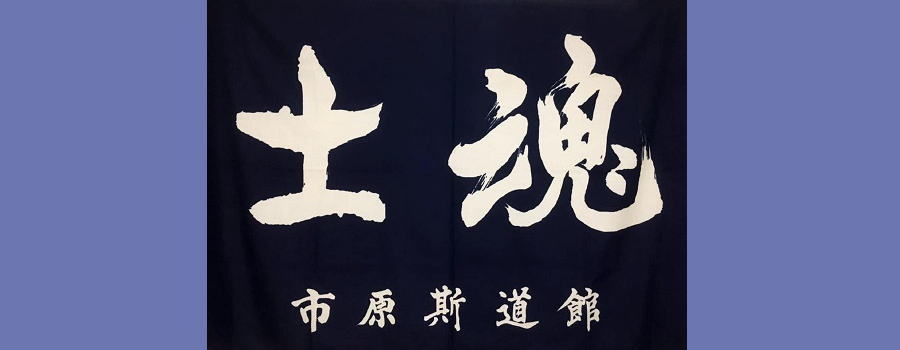 士魂
市原斯道館